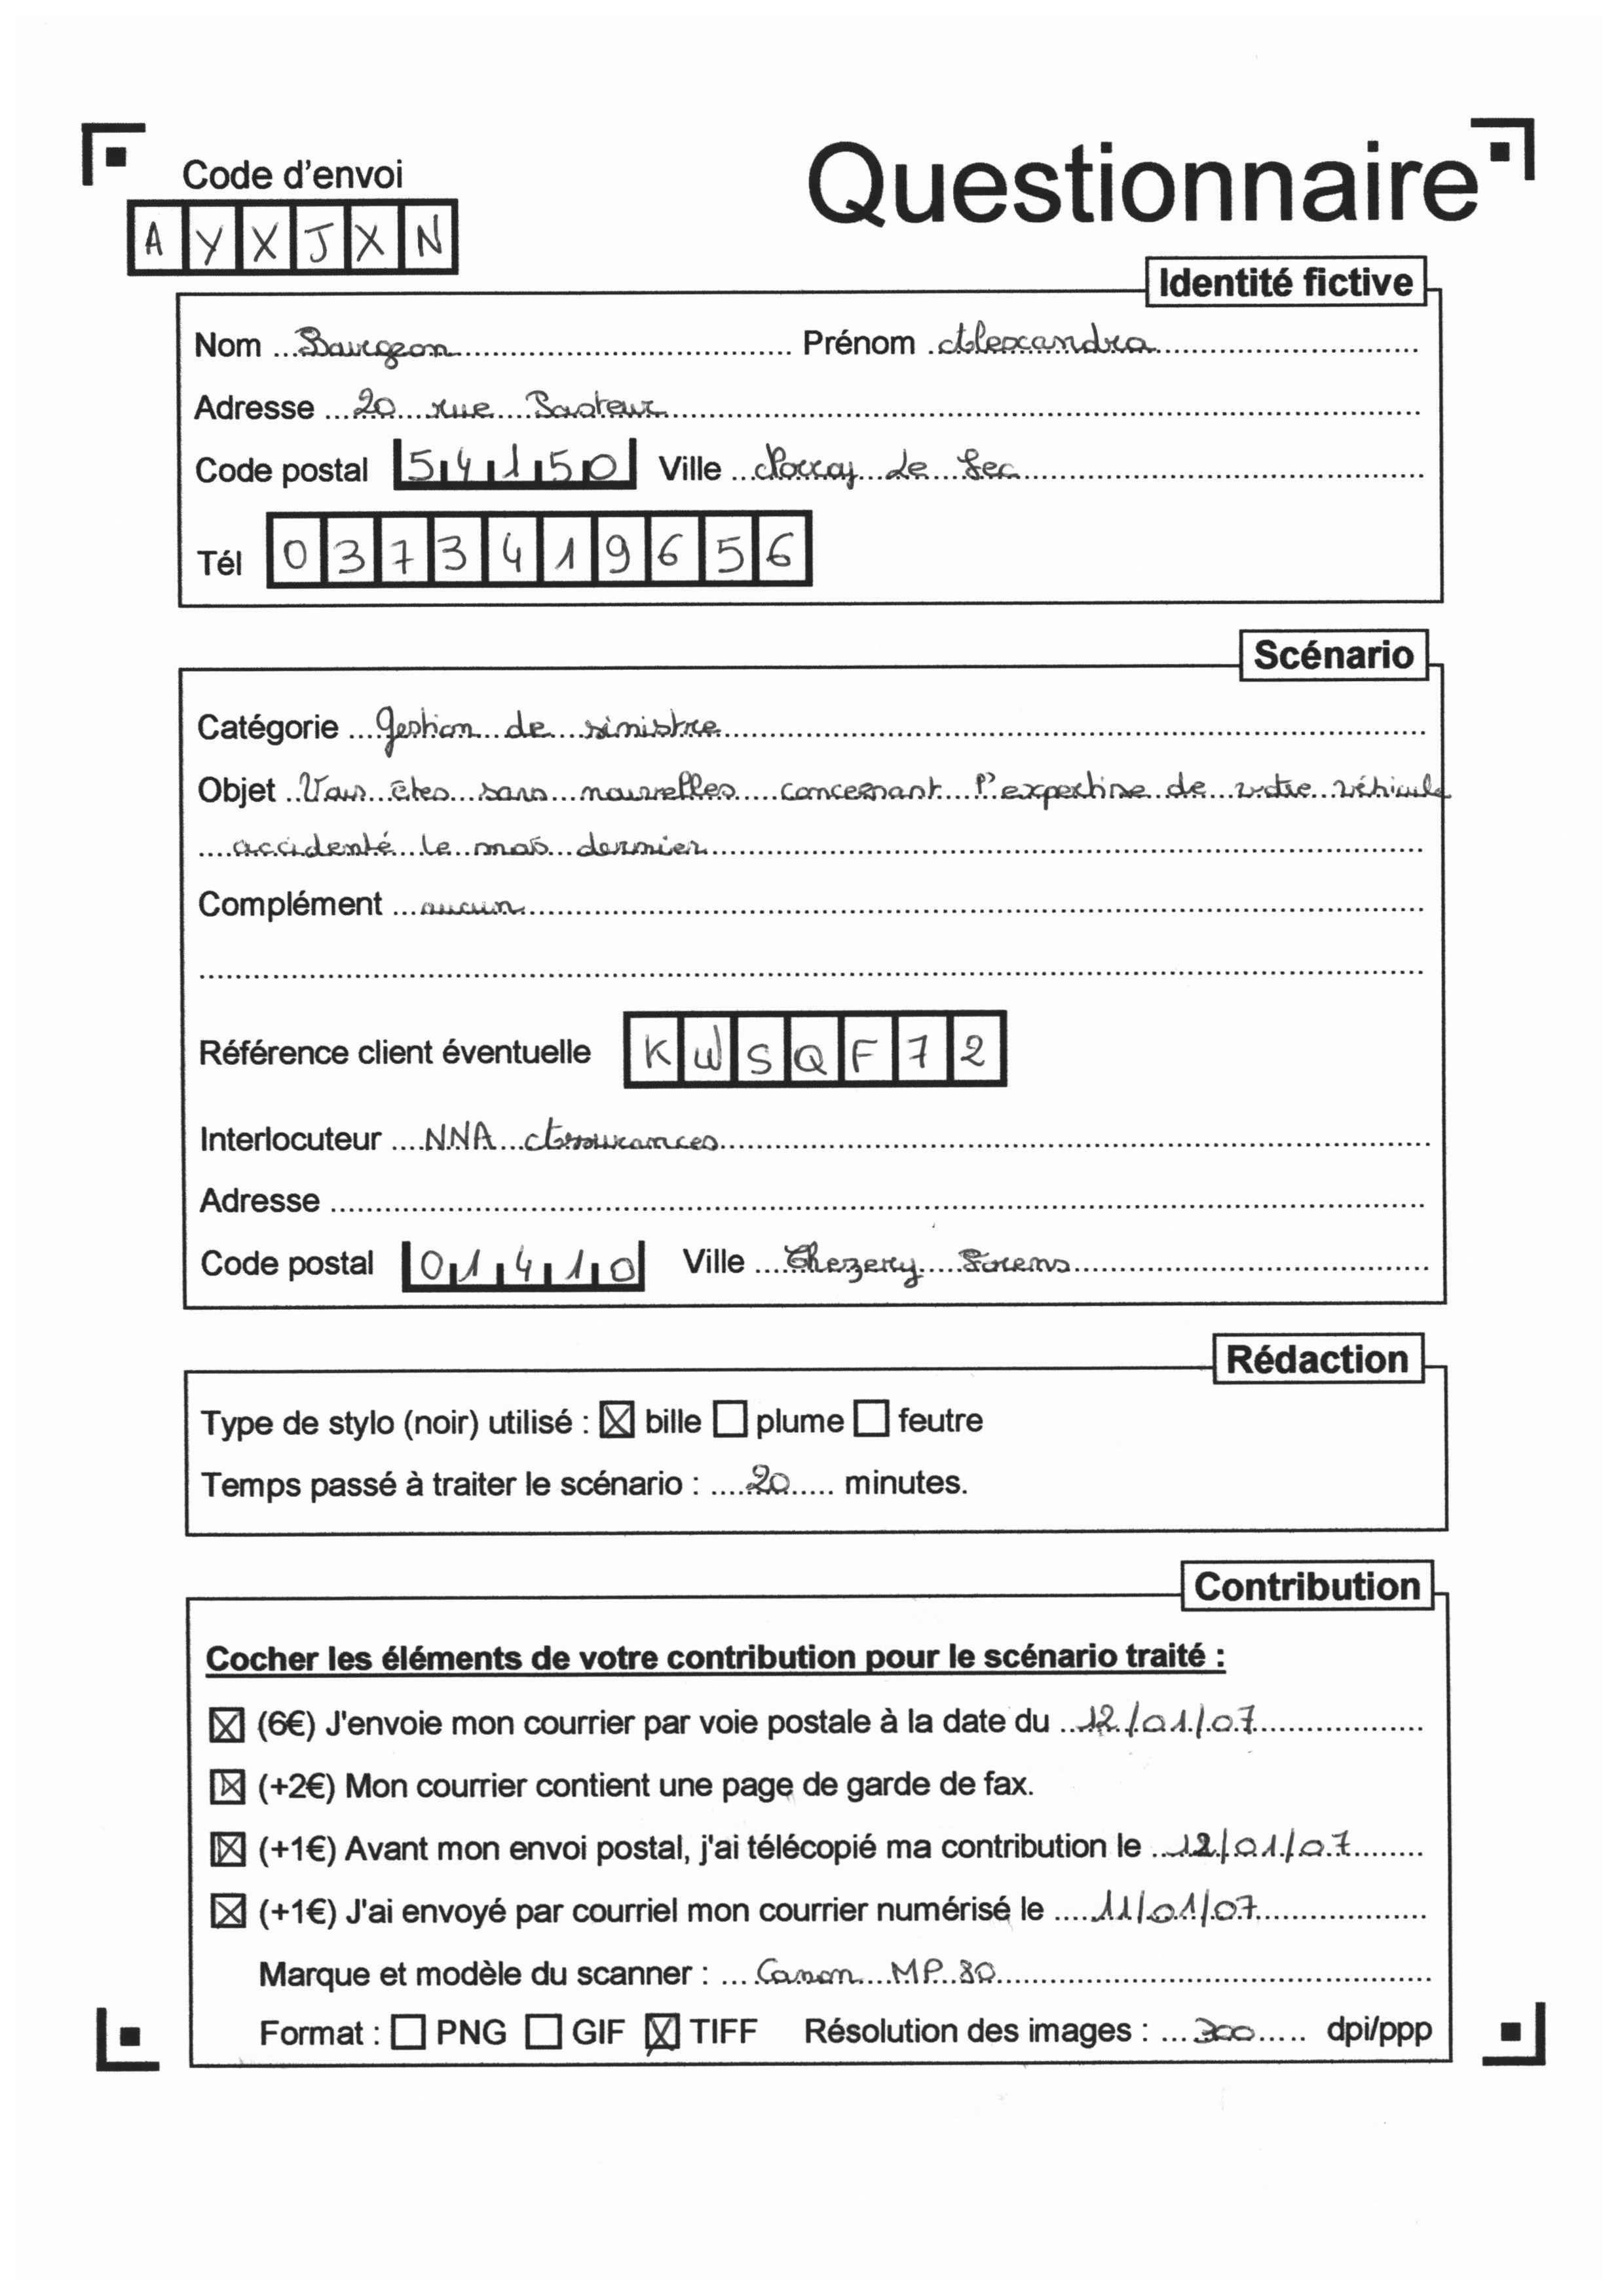 Code d'envoi
Questionnaire
A Y X J X N
Identité fictive
Nom Bourgeon Prénom Alexandra
Adresse 20 rue Pasteur
Code postal 54150 Ville Norroy le Sec
Tél 0373419656
Scénario
Catégorie gestion de sinistre
Objet Vous êtes sans nouvelles concernant l'expertise de votre véhicule
accidenté le mois dernier
Complément aucun
Référence client éventuelle K W S Q F 7 2
Interlocuteur NNA Assurances
Adresse
Code postal 01410 Ville Chezery Forens
Rédaction
Type de stylo (noir) utilisé : ☒ bille ☐ plume ☐ feutre
Temps passé à traiter le scénario : 20 minutes.
Contribution
Cocher les éléments de votre contribution pour le scénario traité :
☒ (6€) J'envoie mon courrier par voie postale à la date du 12/01/07
☒ (+2€) Mon courrier contient une page de garde de fax.
☒ (+1€) Avant mon envoi postal, j'ai télécopié ma contribution le 12/01/07
☒ (+1€) J'ai envoyé par courriel mon courrier numérisé le 11/01/07
Marque et modèle du scanner : Canon MP 80
Format : ☐ PNG ☐ GIF ☒ TIFF Résolution des images : 300 dpi/ppp